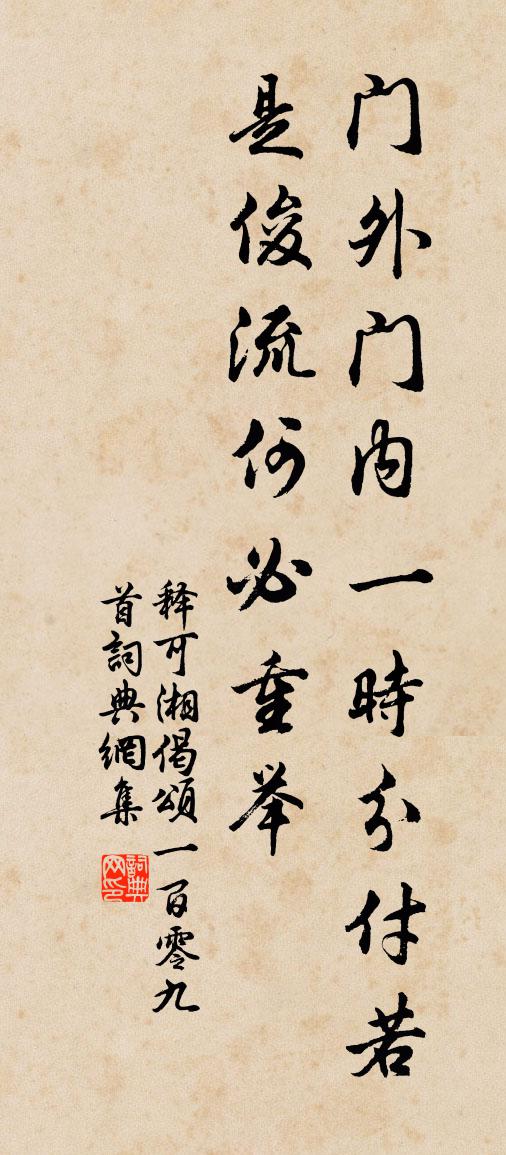 门外门内一時分付若
是俊流何必重举
释可湘偈頌一百零九
首詞典網集
詞典网印